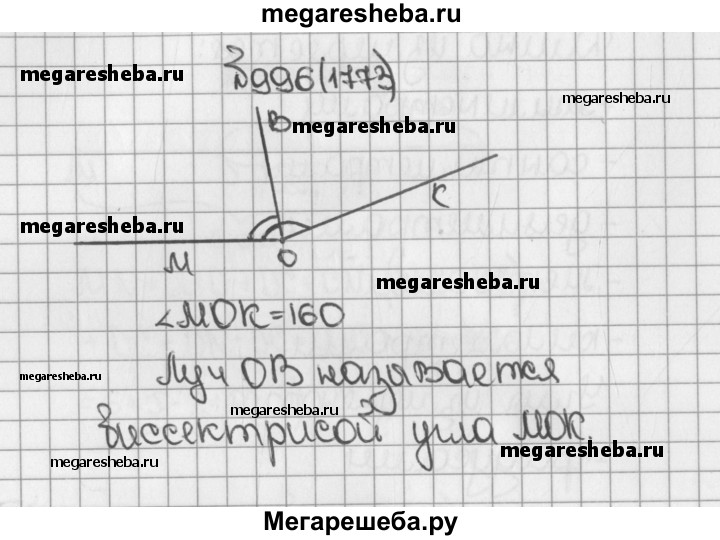 megaresheba.ru
№996(1773)
megaresheba.ru
megaresheba.ru
В
megaresheba.ru
К
megaresheba.ru
М О
megaresheba.ru
∠МОК=160
Луч ОВ называется
megaresheba.ru
megaresheba.ru
биссектрисой угла МОК.
megaresheba.ru
megaresheba.ru
Мегарешеба.ру